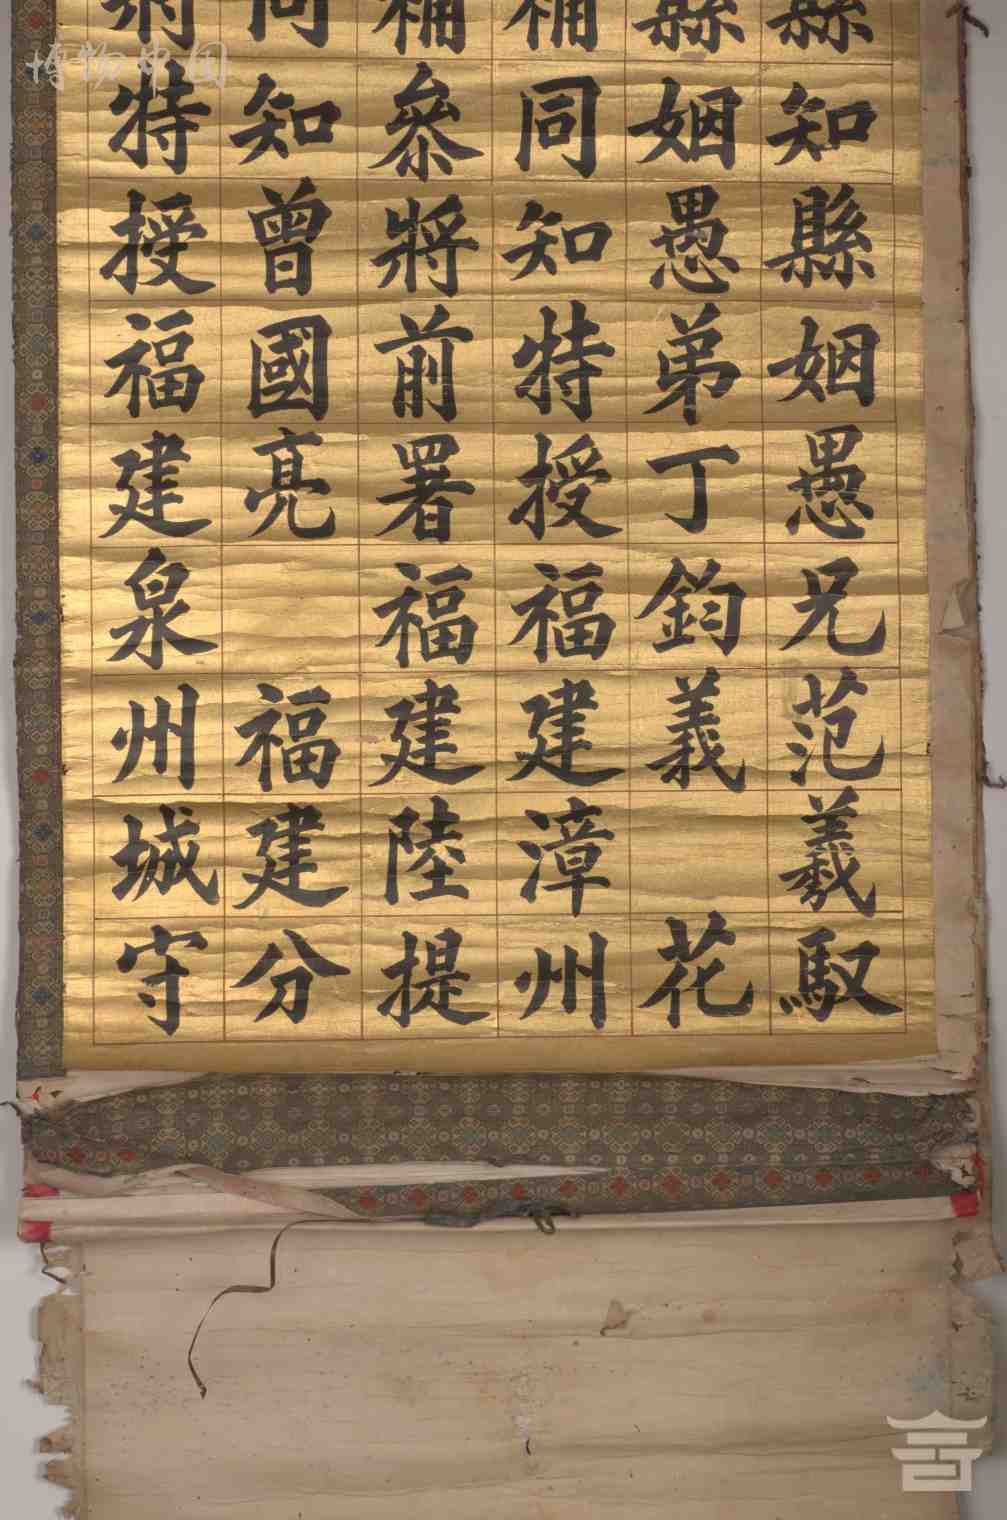 縣知縣姻愚兄范義馭
縣姻愚弟丁鈞義 花
補同知特授福建漳州
補參將前署福建陸提
同知曾國亮 福建分
特授福建泉州城守
博物中国